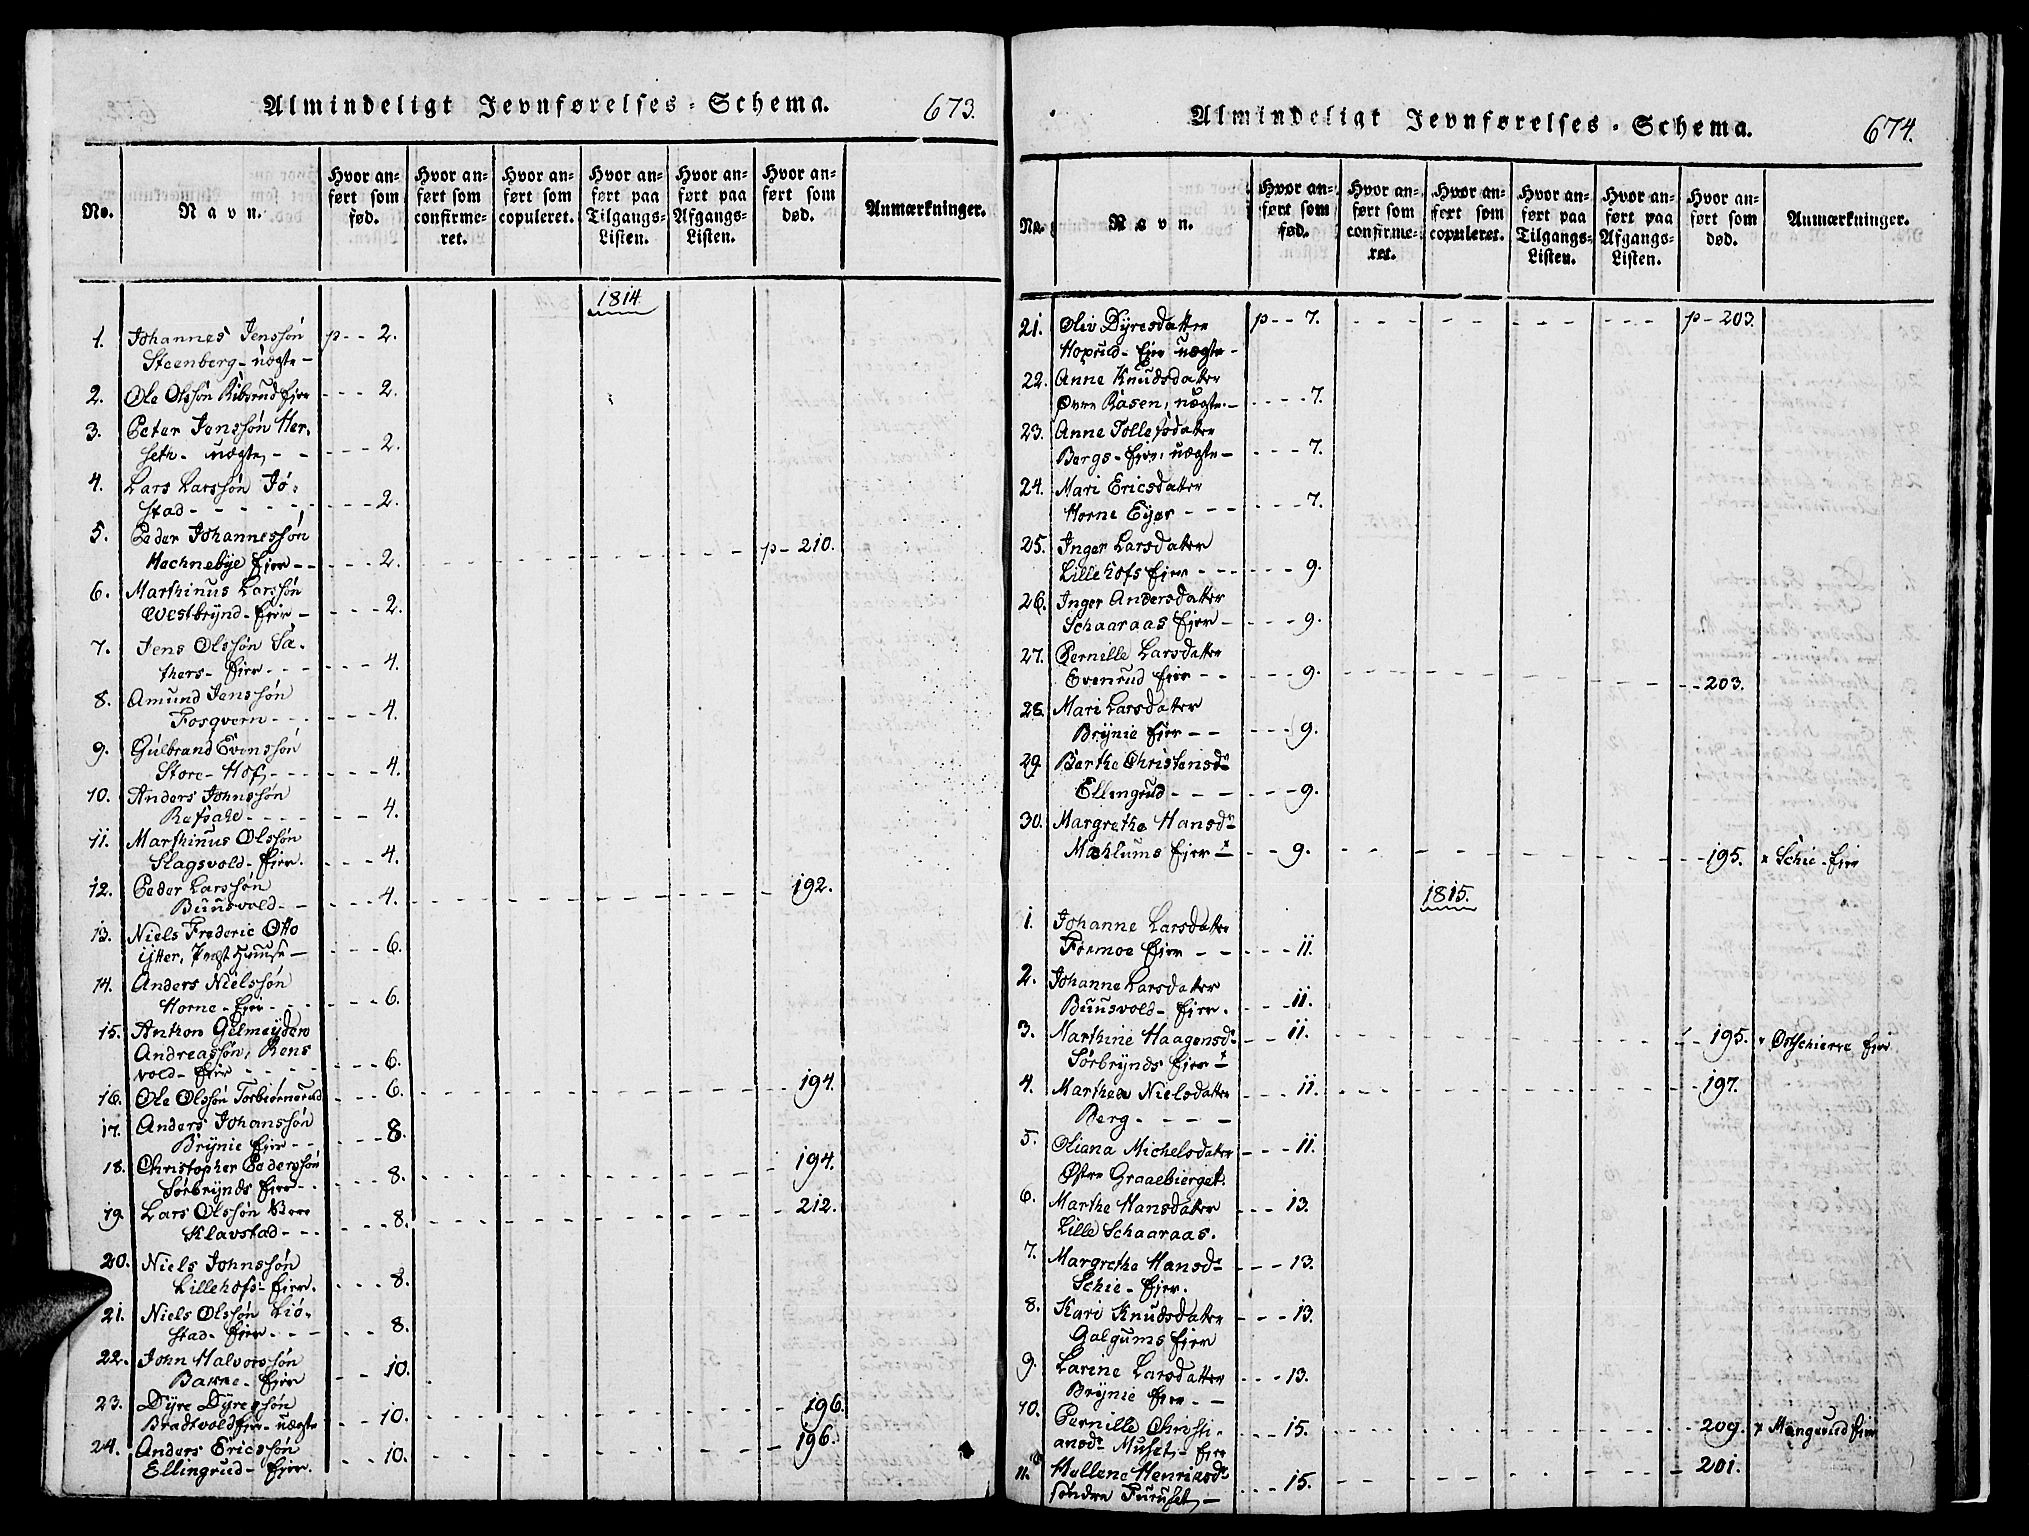 Almindeligt Jevnførelses-Schema.
673.
No.
Navn.
Hvor anført som fød.
Hvor anført som confirmeret.
Hvor anført som copuleret.
Hvor anført paa Tilgangs-Listen.
Hvor anført paa Afgangs-Listen.
Hvor anført som død.
Anmærkninger.
1814
1. Johannes Jenssøn p - - 2.
Steenberg - uægte -
2. Ole Olssøn Ribsrud Ejer - - - 2.
3. Peter Jenssøn Her-
seth - uægte, - - - - - 2.
4. Lars Larssøn Jø-
stad - - - - - - - - 2.
5. Peder Johannessøn
Hachnebye Ejer - - - - - 2. - - - p - 210.
6. Marthinus Larssøn
Westbrynd - Ejer - - - - 2.
7. Jens Olssøn Sæ-
thers - Ejer - - - - - - 4.
8. Amund Jenssøn
Fosqvern - - - - - - 4.
9. Gulbrand Evenssøn
Store - Hof, - - - - - - 4.
10. Anders Johnssøn
Refsahl - - - - - - - 4.
11. Marthinus Olssøn
Slagsvold - Ejer. - - - 4.
12. Peder Larssøn
Buusvold - - - - - 4. - - - 192.
13. Niels Frederic Otto
Ytter, Præst Huuse - - - - 6.
14. Anders Nielssøn
Horne - Ejer - - - - - - 6.
15. Anthon Gelmeyden
Andreassøn, Rens
vold - Ejer - - - - - - - 6.
16. Ole Olssøn Torbiørnsrud - - - 6. - - - 194.
17. Anders Johanssøn
Brynie Ejer - - - - - 8.
18. Christopher Pederssøn
Sørbrynds Ejer - - - - - 8. - - - 194.
19. Lars Olssøn
Klavstad - - - - - - 8. - - - 212.
20. Niels Johnssøn
Lillehofs - Ejer. - - - 8.
21. Niels Olssøn Liø-
stad - Ejer - - - - - - 8.
22. John Halvorssøn
Bakke - Ejer - - 10.
23. Dyre Dyressøn
Bradtvold Ejer - uægte - - 10. - - - 196.
24. Anders Ericssøn
Ellingrud - Ejer. - - 10. - - - 196.
Almindeligt Jevnførelses-Schema.
674.
No.
Navn.
Hvor anført som fød.
Hvor anført som confirmeret.
Hvor anført som copuleret.
Hvor anført paa Tilgangs-Listen.
Hvor anført paa Afgangs-Listen.
Hvor anført som død.
Anmærkninger.
21. Oliv Dyresdatter p - - 7. - - - p - 203.
Hoprud - Ejer uægte -
22. Anne Knudsdatter
Øvre Raasen, uægte. - - - - - 7.
23. Anne Tollefsdatter
Bergs - Ejer, uægte - - - - 7.
24. Mari Ericsdatter
Horne Eyer - - - - - - 7.
25. Inger Larsdatter
Lillehofs Ejer - - - - - - 9.
26. Inger Andersdatter
Schaaraas Ejer - - - - 9.
27. Pernille Larsdatter
Evenrud Ejer - - - - - 9. - - - 203.
28. Mari Larsdatter
Brynie Ejer - - - - - 9.
29. Berthe Christensdr
Ellingrud - - - - - - 9.
30. Margrethe Hansdr
Mæhlums Ejer x - - 9. - - - 195. x Schie - Ejer
1815.
1. Johanne Larsdatter
Formoe Ejer - - - - - 11.
2. Johanne Larsdatter
Buusvold - Ejer. - - - 11.
3. Marthine Haagensdr - - 11. - - - 195. x Ostschierve Ejer
Sørbrynds Ejer x
4. Marthea Nielsdatter - - - 11. - - - 197.
Berg - - - -
5. Oliana Michelsdatter - - - 11.
Østre Graaebierget.
6. Marthe Hansdatter - - - 13.
Lille Schaaraas.
7. Margrethe Hansdr - - - 13.
Schie - Ejer.
8. Kari Knudsdatter - - - 13.
Galgums Ejer
9. Larine Larsdatter - - - 13.
Brynie Ejer - -
10. Pernille Christi-
ansdr Muset, - Ejer - - - 15. - - - 209. x Mengerud Ejer
11. Hellene Henricsdr
søndre Furuset, - - - - 15. - - - 201.